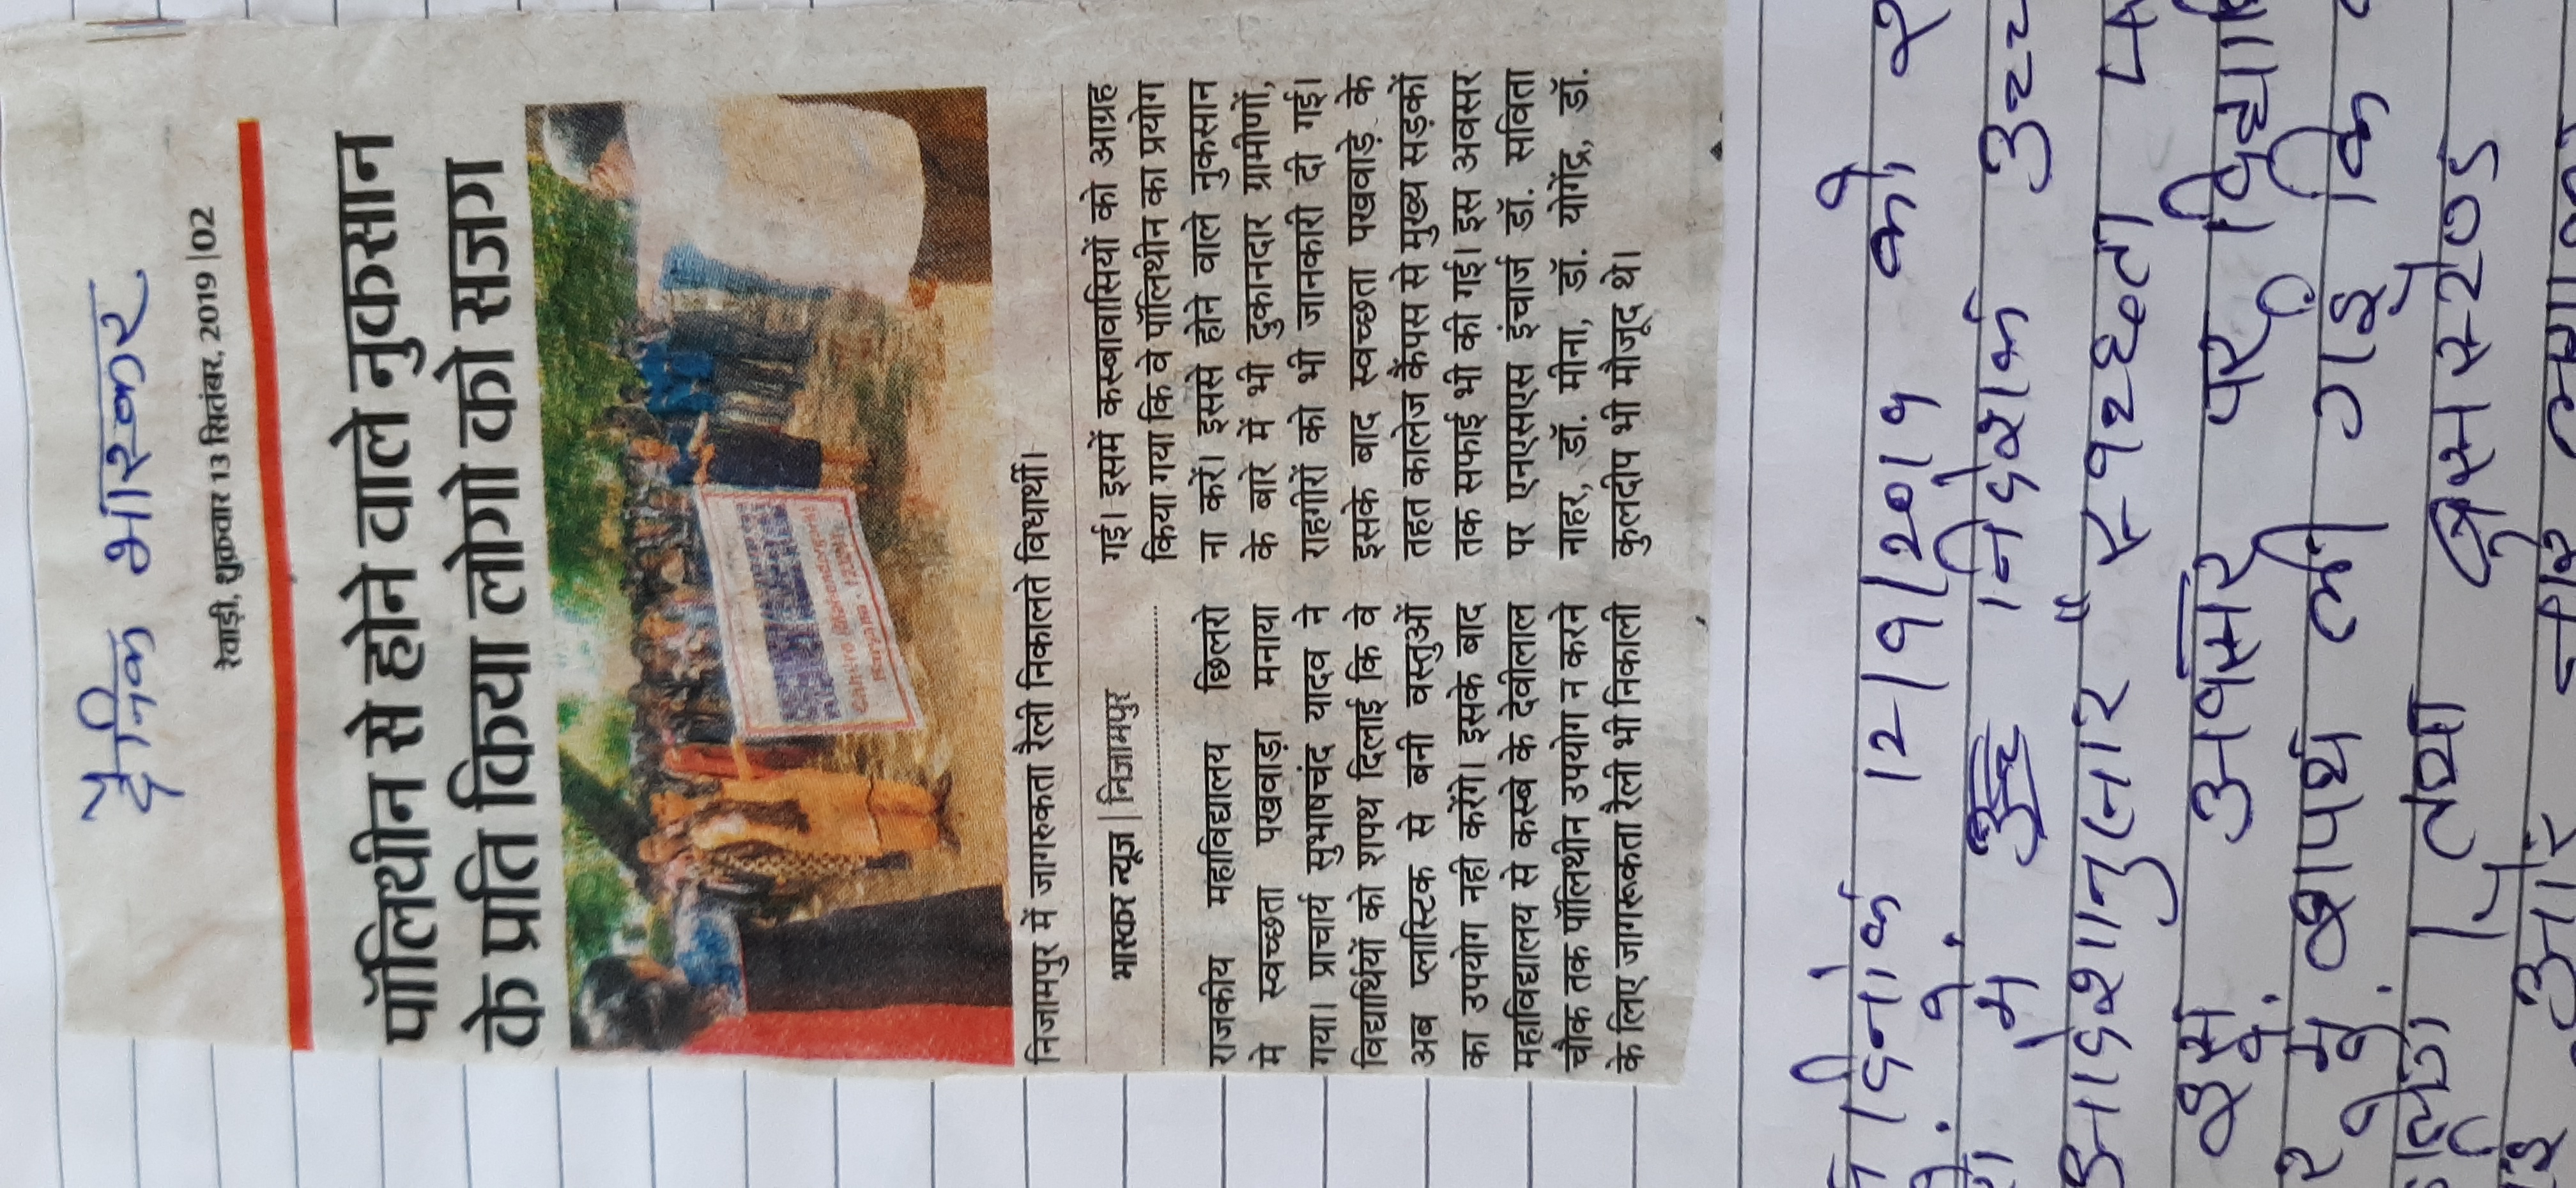 दैनिक भास्कर
रेवाड़ी, शुक्रवार 13 सितंबर, 2019 | 02
पॉलिथीन से होने वाले नुकसान
के प्रति किया लोगो को सजग
निजामपुर में जागरुकता रैली निकालते विधार्थी।
भास्कर न्यूज | निजामपुर
राजकीय महाविद्यालय छिलरो
में स्वच्छता पखवाड़ा मनाया
गया। प्राचार्य सुभाषचंद यादव ने
विद्यार्थियों को शपथ दिलाई कि वे
अब प्लास्टिक से बनी वस्तुओं
का उपयोग नही करेंगे। इसके बाद
महाविद्यालय से कस्बे के देवीलाल
चौक तक पॉलिथीन उपयोग न करने
के लिए जागरूकता रैली भी निकाली
गई। इसमें कस्बावासियों को आग्रह
किया गया कि वे पॉलिथीन का प्रयोग
ना करें। इससे होने वाले नुकसान
के बारे में भी दुकानदार ग्रामीणों,
राहगीरों को भी जानकारी दी गई।
इसके बाद स्वच्छता पखवाड़े के
तहत कालेज कैंपस से मुख्य सड़कों
तक सफाई भी की गई। इस अवसर
पर एनएसएस इंचार्ज डॉ. सविता
नाहर, डॉ. मीना, डॉ. योगेंद्र, डॉ.
कुलदीप भी मौजूद थे।
दिनांक 12/9/2019 को
में निदेशक उच्च
आदेशानुसार "स्वच्छता
अवसर पर
शपथ ली गई कि
तथा
और